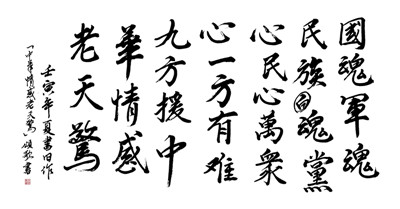 國魂軍魂
民族魂黨
心民心萬衆
心一方有难
九方援中
華情感
老天驚
壬寅年夏書旧作
「中華情感老天驚」頌歌書